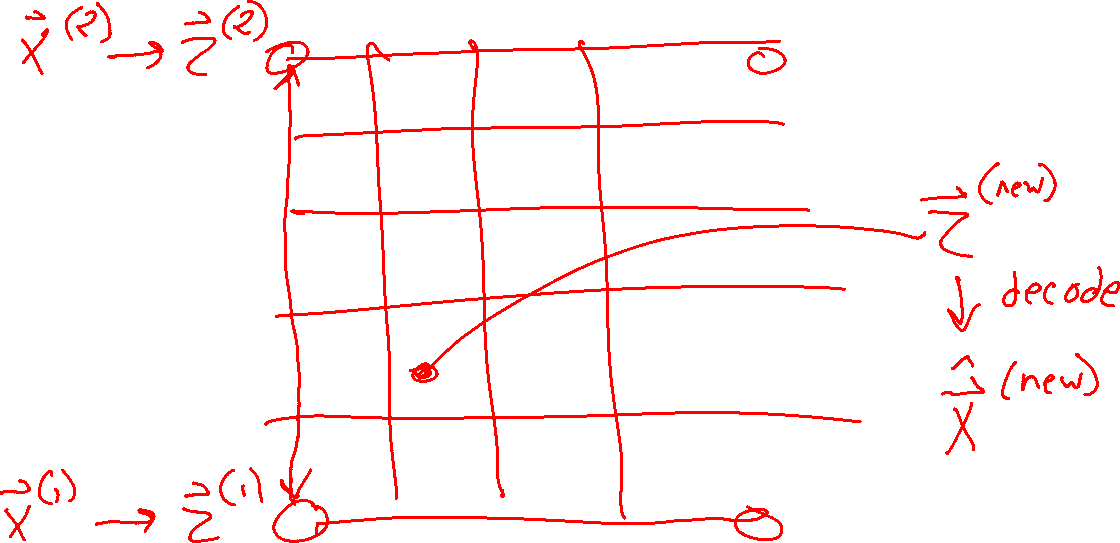 x⃗^(2) → z⃗^(2)
z⃗^(new)
↓ decode
x̂^(new)
x⃗^(1) → z⃗^(1)